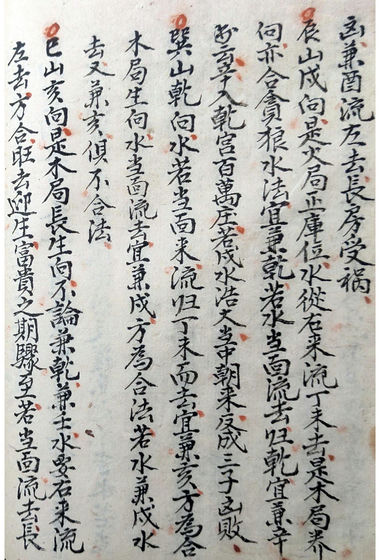 凶兼酉流左去長房受祸
辰山戌向是火局正庫位水從右来流丁未去是木局养
向亦合貪狼水法宜兼乾若水当面流去归乾宜兼辛
水入乾宮百萬庄若戌水浩大当中朝来反成三子凶敗
巽山乾向水若当面来流归丁未而去宜兼亥方為合
木局生向水当面流去宜兼戌方為合法若水兼戌水
去又兼亥俱不合法
巳山亥向是木局長生向不論兼乾兼壬水要右来流
左去方合旺去迎生富貴之期驟至若当面流去長